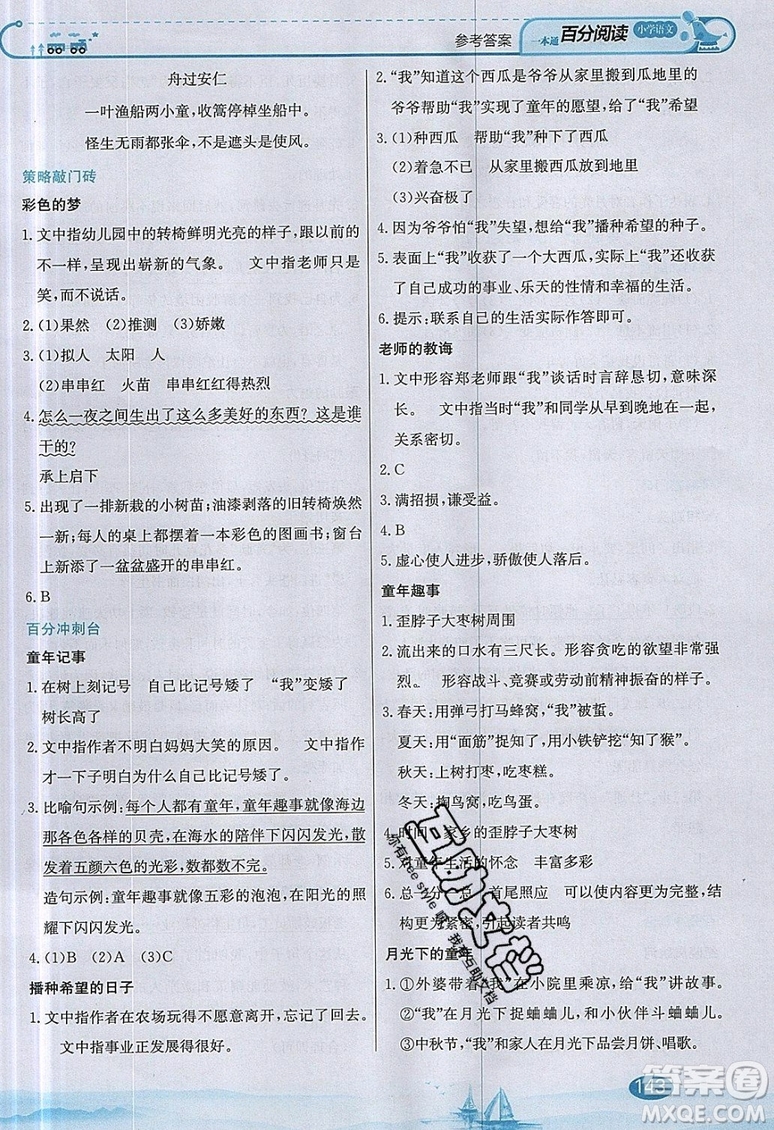 参考答案 一本通 百分阅读 小学语文
舟过安仁
一叶渔船两小童，收篙停棹坐船中。
怪生无雨都张伞，不是遮头是使风。
策略敲门砖
彩色的梦
1. 文中指幼儿园中的转椅鲜明光亮的样子，
很美，呈现出崭新的气象。 文中指老师只是
笑，而不说话。
2. (1)果然 (2)推测 (3)娇嫩
3. (1)拟人 太阳 人
(2)串串红 火苗 串串红红得热烈
4. 怎么一夜之间生出了这么多美好的东西？这是谁
干的？
承上启下
5. 出现了一排新栽的小树苗；油漆剥落的旧转椅焕然
一新；每人的桌上都摆着一本彩色的图画书；窗台
上添了一盆盆盛开的串串红。
6. B
百分冲刺台
童年记事
1. 在树上刻记号 自己比记号矮了 “我”变矮了
树长高了
2. 文中指作者不明白妈妈大笑的原因。 文中指作
者才一下子明白为什么自己比记号矮了。
3. 比喻句示例：每个人都有童年，童年趣事就像海边
那各色各样的贝壳，在海水的陪伴下闪闪发光，散
发着五颜六色的光彩，数都数不完。
造句示例：童年趣事就像五彩的泡泡，在阳光的照
耀下闪闪发光。
4. (1)B (2)A (3)C
播种希望的日子
1. 文中指作者在农场玩得不愿意离开，忘记了回去。
文中指事业正发展得很好。
2. “我”知道这个西瓜是爷爷从家里搬到瓜地里的
爷爷帮助“我”实现了童年的愿望，给了“我”希望
3. (1)种西瓜 帮助“我”种下西瓜
(2)着急不已 从家里搬西瓜放到地里
(3)兴奋极了
4. 因为爷爷怕“我”失望，想给“我”播种希望的种子。
5. 表面上“我”收获了一个大西瓜，实际上“我”还收获
了自己成功的事业、乐天的性情和幸福的生活。
6. 提示：联系自己的生活实际作答即可。
老师的教诲
1. 文中形容郑老师跟“我”谈话时言辞恳切，意味深
长。 文中指当时“我”和同学从早到晚地在一起，
关系密切。
2. C
3. 满招损，谦受益。
4. B
5. 虚心使人进步，骄傲使人落后。
童年趣事
1. 歪脖子大枣树周围
2. 流出来的口水有三尺长。形容贪吃的欲望非常强
烈。 形容战斗、竞赛或行动前精神振奋的样子。
3. 春天：用弹弓打马蜂窝，“我”被蜇。
夏天：用“面筋”粘知了，用小铁铲挖“知了猴”。
秋天：上树打枣，吃枣糕。
冬天：掏鸟窝，吃鸟蛋。
4. 时间 家乡的歪脖子大枣树
5. 对童年生活的怀念 丰富多彩
6. 总—分—总 首尾照应 可以使内容更完整，结
构更为紧密，引起读者共鸣
月光下的童年
1. ①外婆带着“我”在小院里乘凉，给“我”讲故事。
②“我”在月光下捉蛐蛐儿，和小伙伴斗蛐蛐儿。
③中秋节，“我”和家人在月光下品尝月饼、唱歌。
互助文档
143
答案圈
MXQE.COM